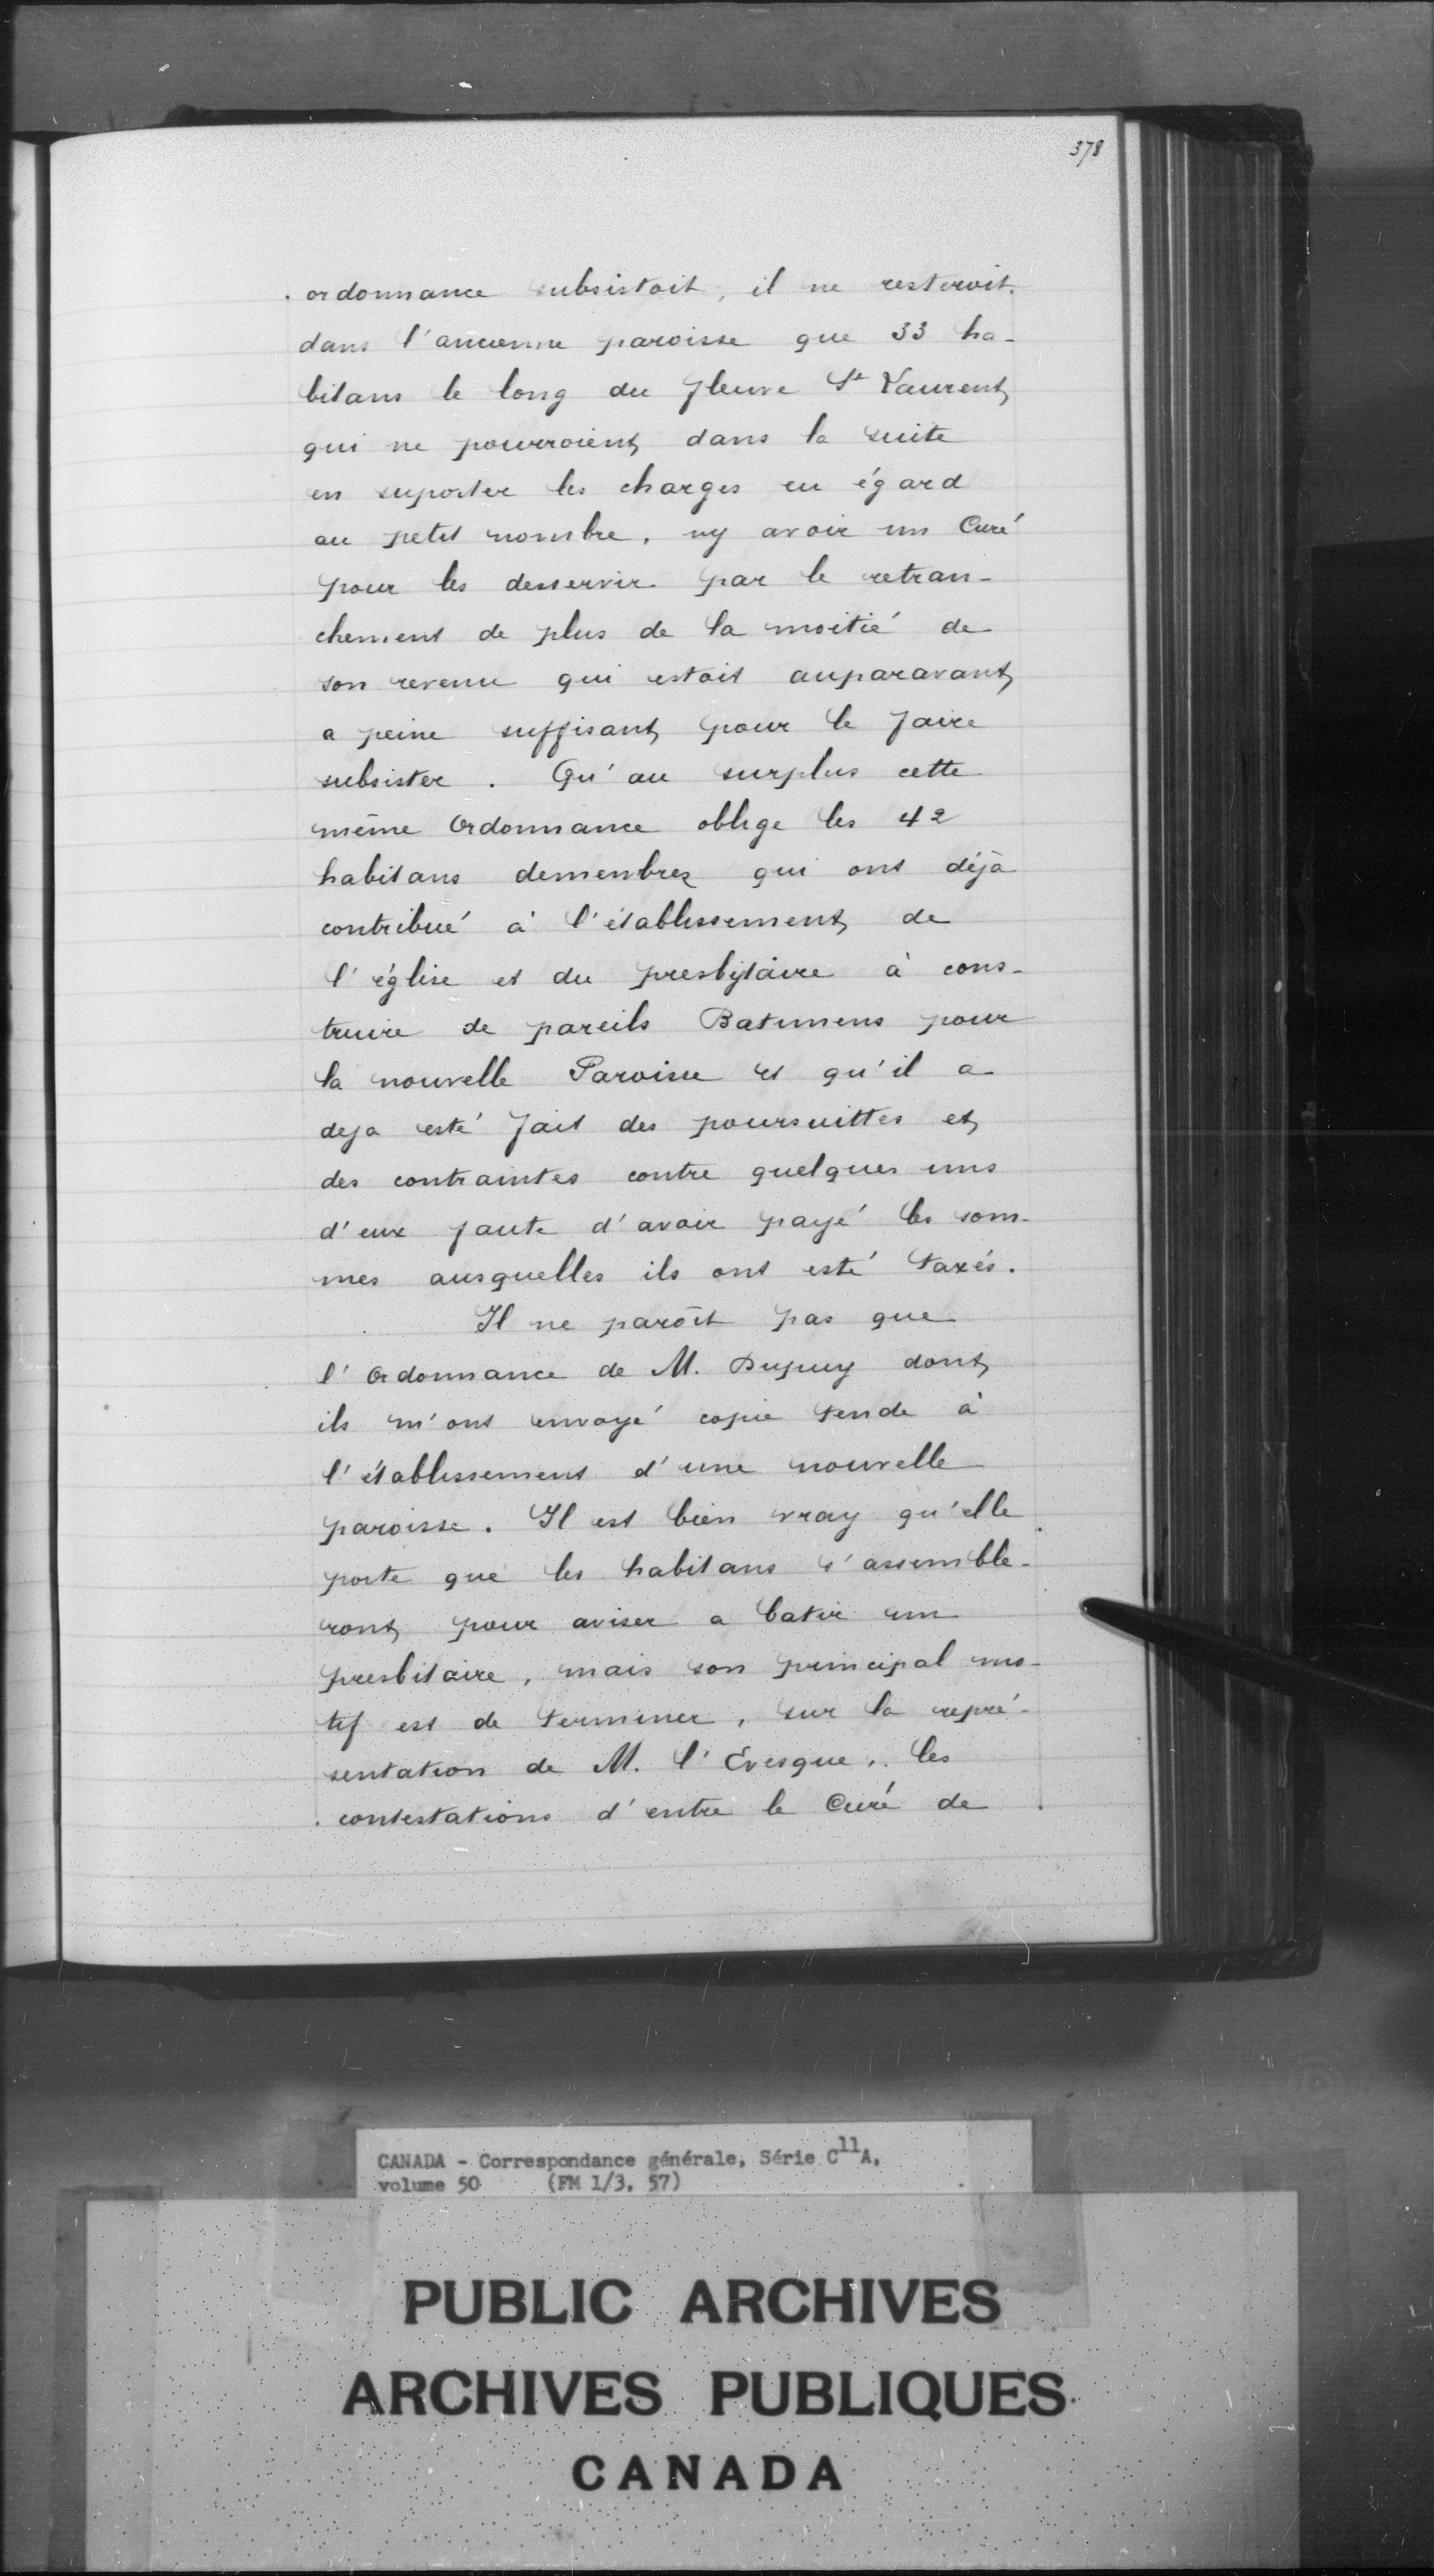 378
ordonnance subsistoit, il ne resteroit
dans l'ancienne paroisse que 33 ha-
bitans le long du fleuve St Laurent
qui ne pourroient dans la suite
en suporter les charges eu égard
au petit nombre, ny avoir un Curé
pour les desservir par le retran-
chement de plus de la moitié de
son revenu qui estoit auparavant
a peine suffisant pour le faire
subsister. Qu'au surplus cette
même Ordonnance oblige les 42
habitans demembrez qui ont déjà
contribué à l'établissement de
l'église et du presbytaire à cons-
truire de pareils Batimens pour
la nouvelle Paroisse et qu'il a
deja esté fait des poursuittes et
des contraintes contre quelques uns
d'eux faute d'avoir payé les som-
mes ausquelles ils ont esté taxés.
Il ne paroît pas que
l'Ordonnance de M. Dupuy dont
ils m'ont envoyé copie tende à
l'établissement d'une nouvelle
paroisse. Il est bien vray qu'elle
porte que les habitans s'assemble-
ront pour aviser a batir un
presbitaire, mais son principal mo-
tif est de terminer, sur la repré-
sentation de M. l'Evesque, les
contestations d'entre le Curé de
CANADA - Correspondance générale, Série C11A,
volume 50 (FM 1/3, 57)
PUBLIC ARCHIVES
ARCHIVES PUBLIQUES
CANADA